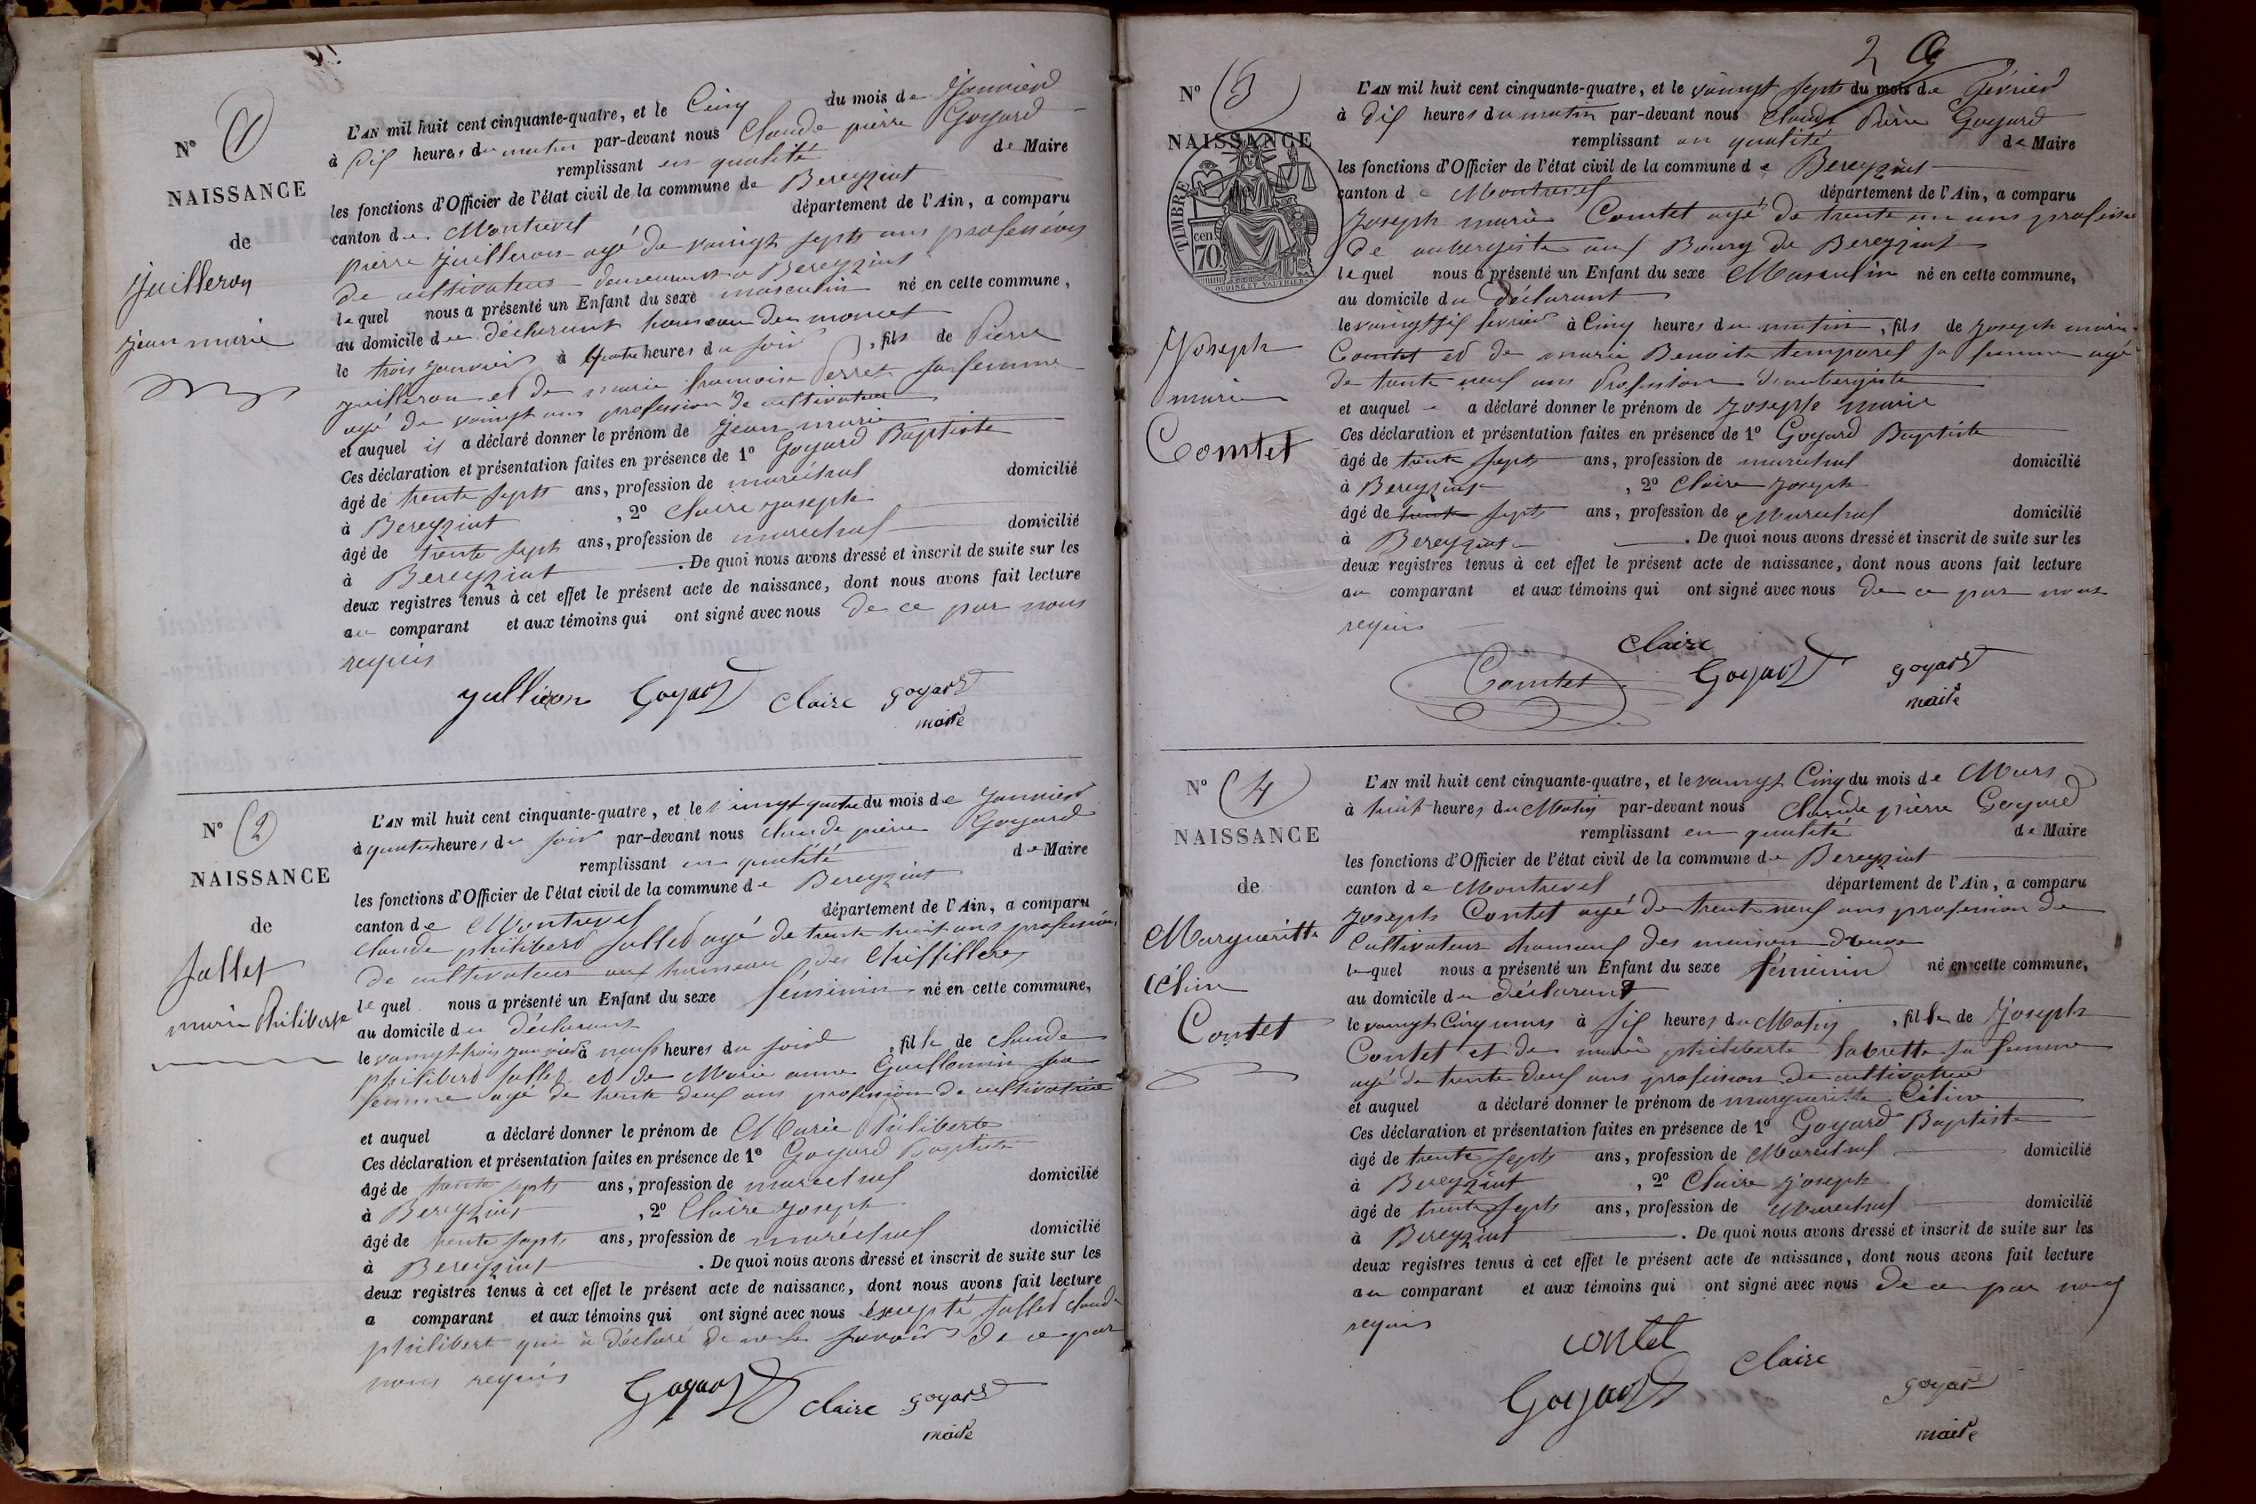 N° 1
NAISSANCE
de
Juilleron
jean marie
L'AN mil huit cent cinquante-quatre, et le Cinq du mois de Janvier
à dix heures du matin par-devant nous Claude pierre Goyard
remplissant en qualité de Maire
les fonctions d'Officier de l'état civil de la commune de Bereyziat
canton de Montrevel département de l'Ain, a comparu
pierre juilleron agé de vaingt septs ans profession
de cultivateur demeurant a Bereyziat
lequel nous a présenté un Enfant du sexe masculin né en cette commune,
au domicile du déclarant hameau du moncet
le trois janvier à quatre heures du soir, fils de Pierre
juilleron et de marie francoise Perret sa femme
agé de vaingt ans profession de cultivatrice
et auquel il a déclaré donner le prénom de jean marie
Ces déclaration et présentation faites en présence de 1° Goyard Baptiste
âgé de trente septs ans, profession de maréchal domicilié
à Bereyziat, 2° Claire joseph
âgé de trente septs ans, profession de marechal domicilié
à Bereyziat. De quoi nous avons dressé et inscrit de suite sur les
deux registres tenus à cet effet le présent acte de naissance, dont nous avons fait lecture
au comparant et aux témoins qui ont signé avec nous de ce par nous
requis
Goyard Claire goyard
maire
N° 2
NAISSANCE
de
jallet
marie Philiberte
L'AN mil huit cent cinquante-quatre, et le vingt quatre du mois de Janvier
à quatres heures du soir par-devant nous claude pierre Goyard
remplissant en qualité de Maire
les fonctions d'Officier de l'état civil de la commune de Bereyziat
canton de Montrevel département de l'Ain, a comparu
claude philibert jallet agé de trente huit ans profession
de cultivateur aux hameau des Chiffilleres
lequel nous a présenté un Enfant du sexe féminin né en cette commune,
au domicile du déclarant
le vaingt trois janvier à neuf heures du soir, fille de claude
philibert jallet et de Marie anne Guillemin sa
femme agé de trente deux ans profession de cultivatrice
et auquel a déclaré donner le prénom de Marie Philiberte
Ces déclaration et présentation faites en présence de 1° Goyard Baptiste
âgé de trente septs ans, profession de marechal domicilié
à Bereyziat, 2° Claire joseph
âgé de trente septs ans, profession de maréchal domicilié
à Bereyziat. De quoi nous avons dressé et inscrit de suite sur les
deux registres tenus à cet effet le présent acte de naissance, dont nous avons fait lecture
a comparant et aux témoins qui ont signé avec nous éxcepté jallet claude
philibert qui a déclaré de ne le savoir de ce par
nous requis
Goyard Claire goyard
maire
2
N° 3
NAISSANCE
TIMBRE
70 cen.
Joseph
marie
Comtet
L'AN mil huit cent cinquante-quatre, et le vaingt septs du mois de Février
à dix heures du matin par-devant nous Claude Pierre Goyard
remplissant en qualité de Maire
les fonctions d'Officier de l'état civil de la commune de Bereyziat
canton de Montrevel département de l'Ain, a comparu
Joseph marie Comtet agé de trente un ans profession
de aubergiste aux Bourg de Bereyziat
lequel nous a présenté un Enfant du sexe Masculin né en cette commune,
au domicile du déclarant
le vaingt six fevrier à Cinq heures du matin, fils de Joseph marie
Comtet et de marie Benoite temporel sa femme agé
de trente neuf ans Profession d'aubergiste
et auquel a déclaré donner le prénom de Josephe marie
Ces déclaration et présentation faites en présence de 1° Goyard Baptiste
âgé de trente septs ans, profession de marechal domicilié
à Bereyziat, 2° Claire Joseph
âgé de trente septs ans, profession de Marechal domicilié
à Bereyziat. De quoi nous avons dressé et inscrit de suite sur les
deux registres tenus à cet effet le présent acte de naissance, dont nous avons fait lecture
au comparant et aux témoins qui ont signé avec nous de ce par nous
requis
Claire
Comtet Goyard goyard
maire
N° 4
NAISSANCE
de
Margueritte
Céline
Contet
L'AN mil huit cent cinquante-quatre, et le vaingt Cinq du mois de Mars
à huit heures du Matin par-devant nous Claude pierre Goyard
remplissant en qualité de Maire
les fonctions d'Officier de l'état civil de la commune de Bereyziat
canton de Montrevel département de l'Ain, a comparu
Joseph Contet agé de trente neuf ans profession de
Cultivateur hameaux des maison
lequel nous a présenté un Enfant du sexe féminin né en cette commune,
au domicile du déclarant
le vaingt Cinq mars à six heures du Matin, fille de Joseph
Contet et de marie philiberte sa femme
agé de trente deux ans profession de cultivatrice
et auquel a déclaré donner le prénom de margueritte Céline
Ces déclaration et présentation faites en présence de 1° Goyard Baptiste
âgé de trente septs ans, profession de Marechal domicilié
à Bereyziat, 2° Claire joseph
âgé de trente septs ans, profession de Marechal domicilié
à Bereyziat. De quoi nous avons dressé et inscrit de suite sur les
deux registres tenus à cet effet le présent acte de naissance, dont nous avons fait lecture
au comparant et aux témoins qui ont signé avec nous de ce par nous
requis
contet
Claire
Goyard goyard
maire